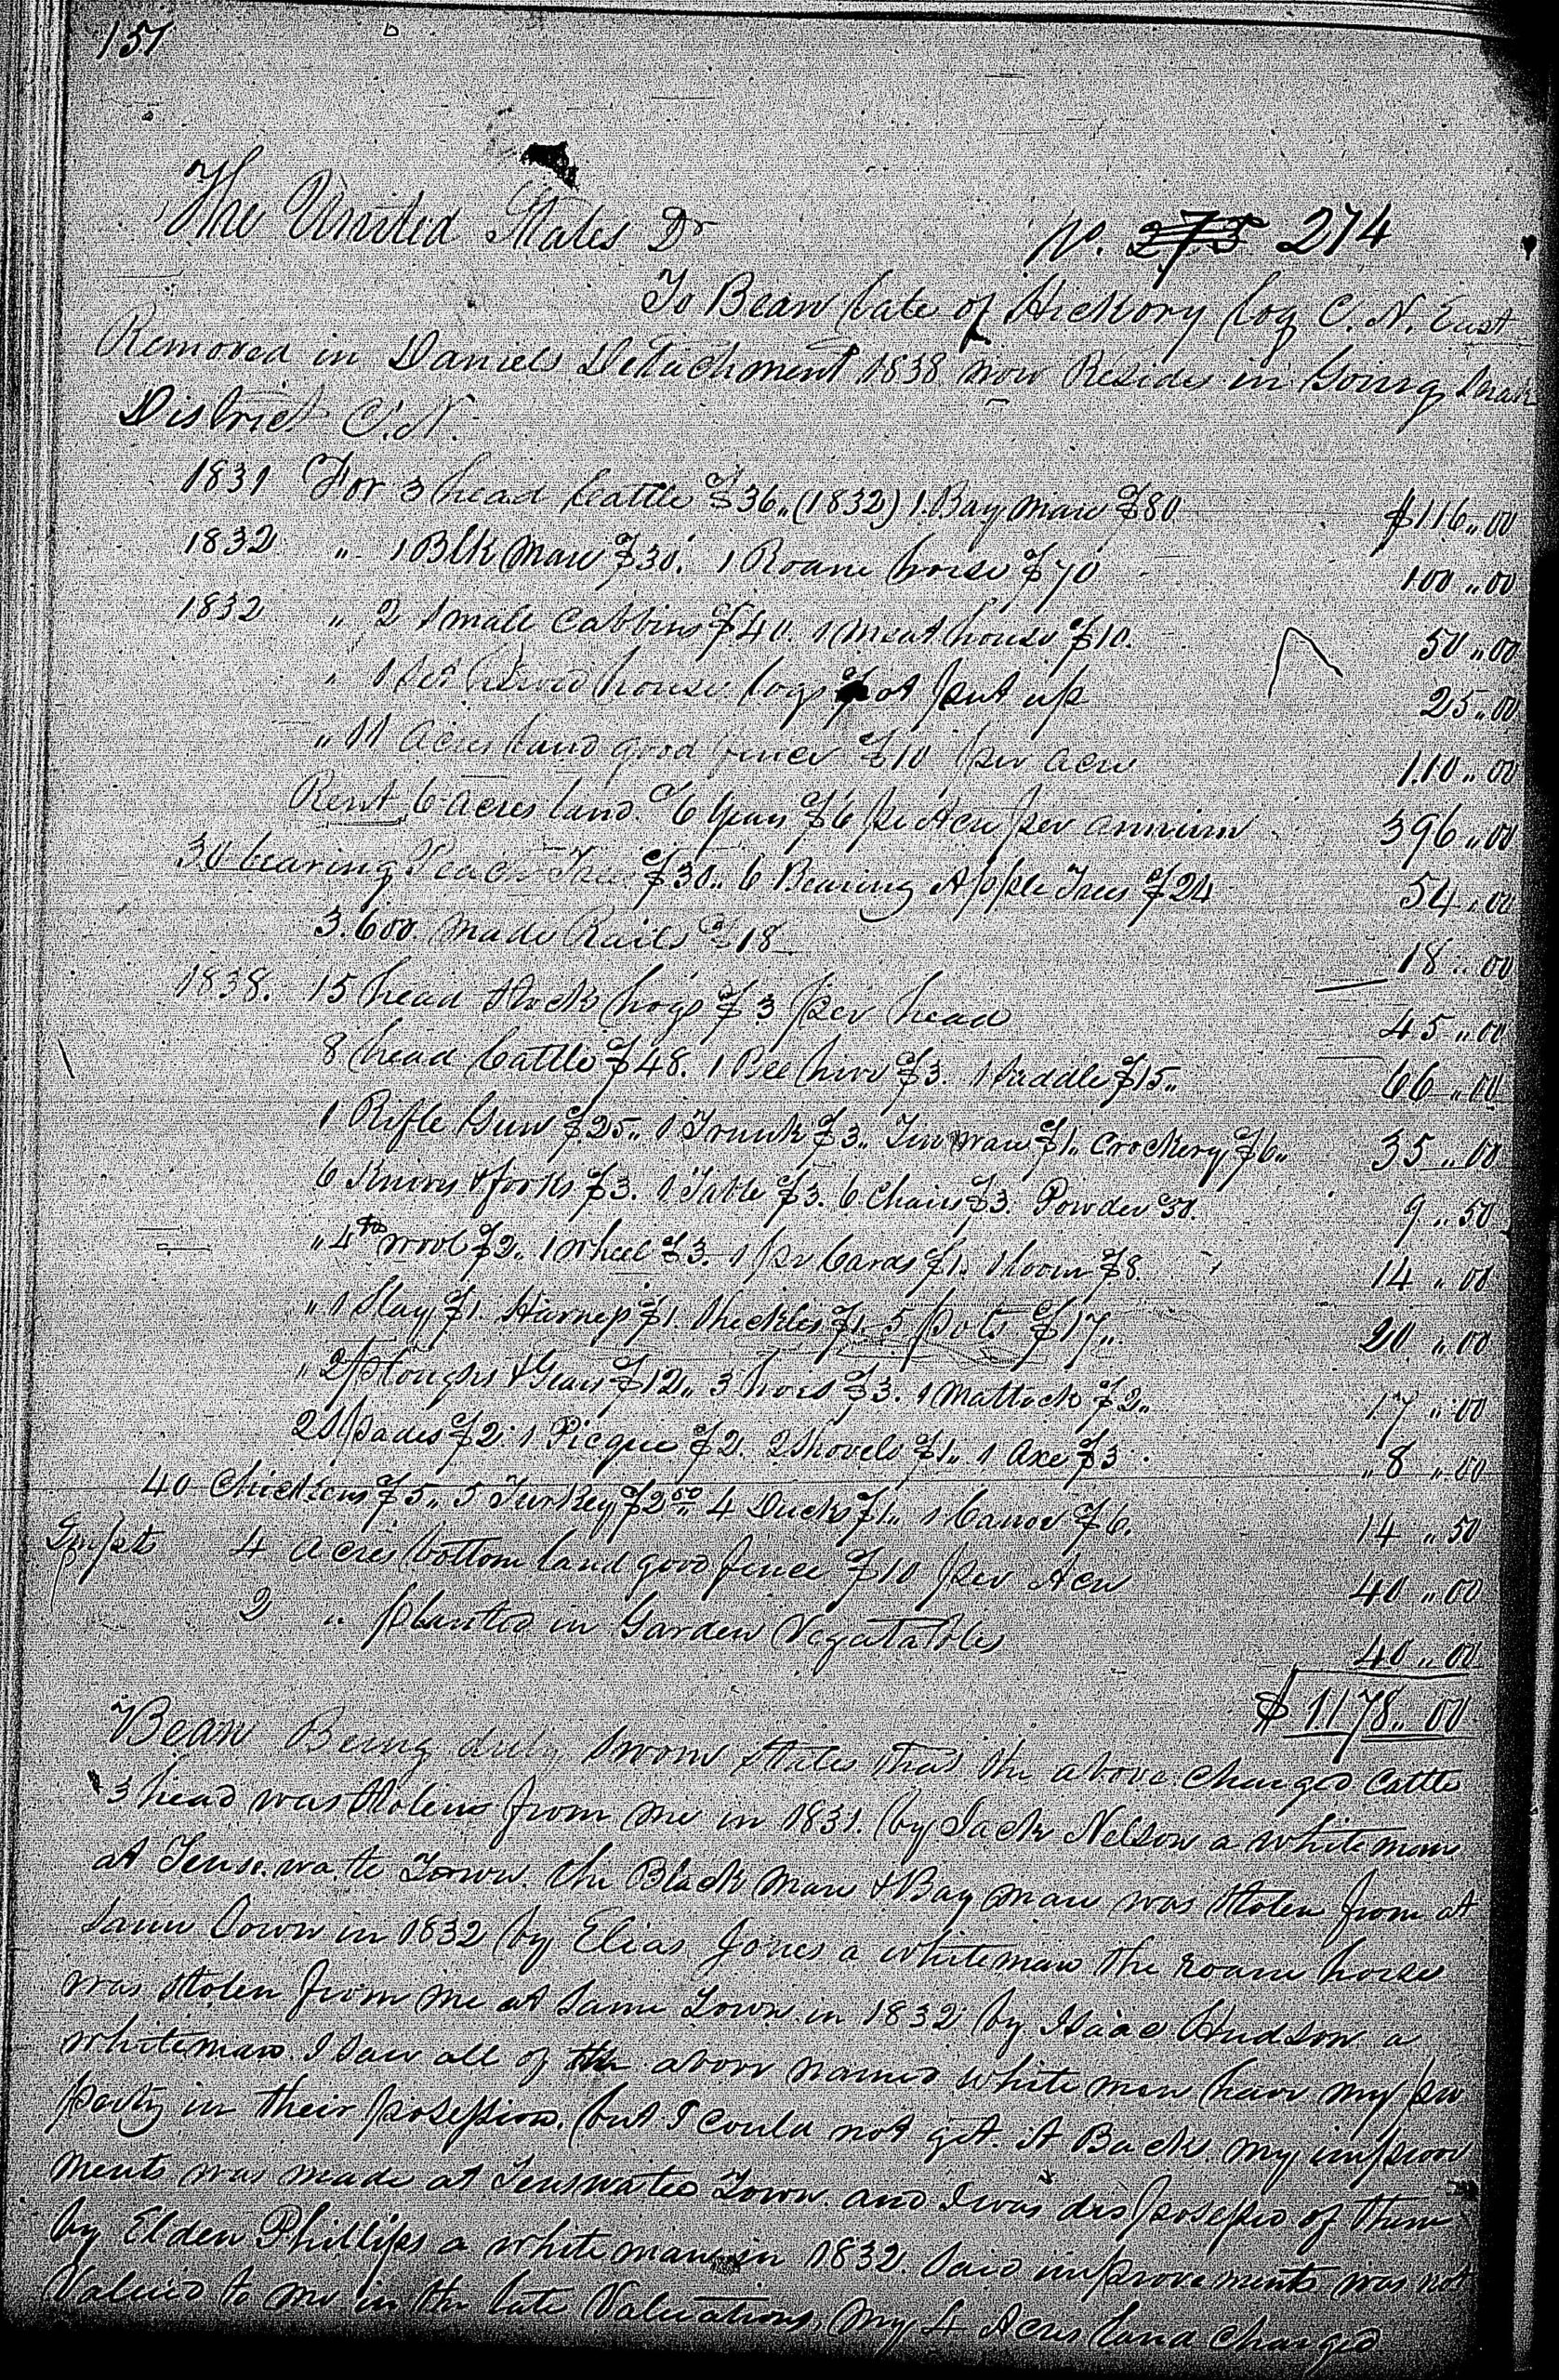 151
The United States Dr No. 273 274
To Bean late of Hickory log C. N. East
Removed in Daniels Detachment 1838 now Resides in Going Snake
District C. N.
1831 For 3 head Cattle $36,, (1832) 1 Bay mare $80 $116,,00
1832 ,, 1 Blk Mare $30. 1 Roane horse $70 100,,00
1832 ,, 2 small Cabbins $40. 1 meat house $10. 50,,00
,, 1 set hewed house logs not put up 25,,00
,, 11 acres land good fence $10 per acre 110,,00
Rent 6 acres land 6 years $6 pr Acre per annum 396,,00
30 bearing Peach Trees $30,, 6 Bearing Apple Trees $24 54,,00
3.600 made Rails $18 18,,00
1838. 15 head stock hogs $3 per head 45,,00
8 head Cattle $48. 1 Bee hive $3. 1 saddle $15,, 66,,00
1 Rifle Gun $25,, 1 Trunk $3,, Tin ware $1,, Crockery $6,, 35,,00
6 Knives & forks $3. 1 Table $3. 6 Chairs $3. Powder 50. 9,,50
,, 4 lb wool $2,, 1 wheel $3. 1 pr Cards $1. 1 loom $8. 14,,00
,, 1 Slay $1. Harness $1. Sheckles $1. 5 pots $17,, 20,,00
,, 2 ploughs & Gears $12,, 3 hoes $3. 1 Mattock $2,, 17,,00
2 Spades $2. 1 Picque $2. 2 Shovels $1,, 1 Axe $3. ,,8,,00
40 Chickens $5,, 5 Turkey $2.50,, 4 Ducks $1,, 1 Canoe $6. 14,,50
Impts 4 acres bottom land good fence $10 per Acre 40,,00
2 ,, planted in Garden Vegatables 40,,00
$1178,,00
Bean Being duly sworn states that the above charged Cattle
3 head was stolens from me in 1831. by Jack Nelson a whiteman
at Tensewate Town. the Black mare & Bay mare was stolen from at
same Town in 1832 by Elias Jones a whiteman the roane horse
was stolen from me at same Town in 1832 by Isaac Hudson a
whiteman. I saw all of the above named white men have my pro
perty in their possession, but I could not get it Back. my improve
ments was made at Tenswatee Town and I was dispossessed of them
by Elden Phillips a whiteman in 1832. Said improvements was not
Valued to me in the late Valuations, My 4 Acres land charged